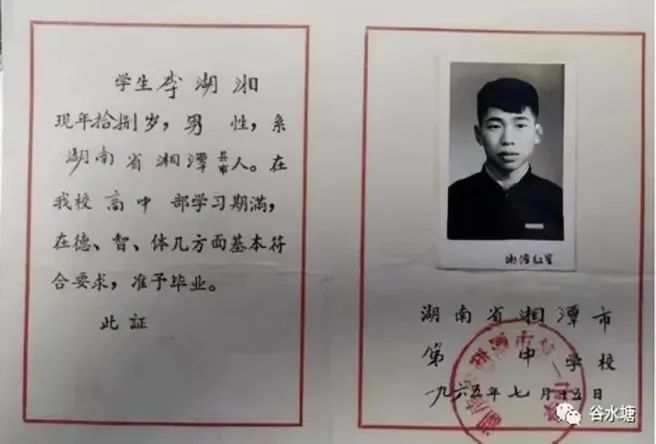 学生李湖湘
现年拾捌岁，男性，系
湖南省湘潭县市人。在
我校高中部学习期满，
在德、智、体几方面基本符
合要求，准予毕业。
此证
湘潭红星
湖南省湘潭市
第 中学校
一九六五年七月十五日
谷水塘